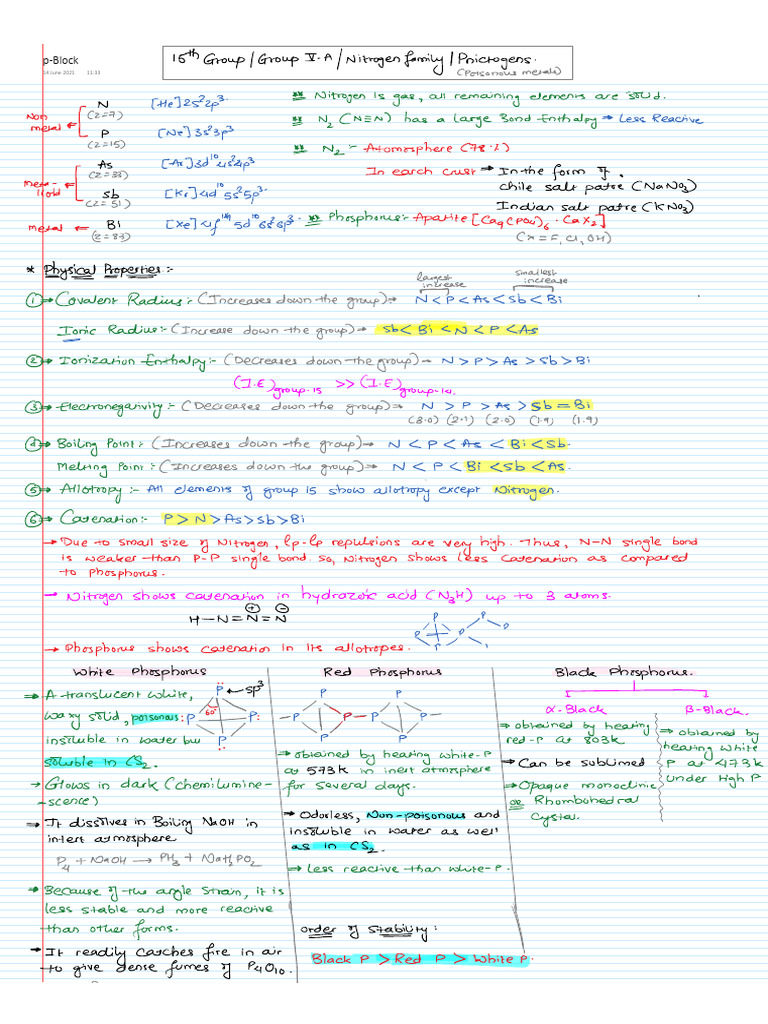 p-Block
14 June 2021 11:11
15th Group / Group V.A / Nitrogen family / Pnictogens.
(Poisonous metals)
Non metal ← N (Z=7) [He]2s²2p³
P (Z=15) [Ne]3s²3p³
Meta-lloid ← As (Z=33) [Ar]3d¹⁰4s²4p³
Sb (Z=51) [Kr]4d¹⁰5s²5p³
metal ← Bi (Z=83) [Xe]4f¹⁴5d¹⁰6s²6p³
** Nitrogen is gas, all remaining elements are solid.
** N₂ (N≡N) has a large Bond Enthalpy → Less Reactive
** N₂ :- Atomosphere (78%)
In earch crust → In the form of.
chile salt patre (NaNO₃)
Indian salt patre (KNO₃)
** Phosphorus:- Apatite [Ca₉(PO₄)₆ · CaX₂]
(X = F, Cl, OH)
* Physical Properties:-
largest increase smallest increase
① → Covalent Radius:- (Increases down the group) → N < P < As < Sb < Bi
Ionic Radius:- (Increase down the group) → Sb < Bi < N < P < As
② → Ionization Enthalpy:- (Decreases down the group) → N > P > As > Sb > Bi
(I.E)group-15 >> (I.E)group-14.
③ → Electronegativity:- (Decreases down the group) → N > P > As > Sb = Bi
(3.0) (2.1) (2.0) (1.9) (1.9)
④ → Boiling Point:- (Increases down the group) → N < P < As < Bi < Sb.
Melting Point:- (Increases down the group) → N < P < Bi < Sb < As.
⑤ → Allotropy:- All elements of group 15 show allotropy except Nitrogen.
⑥ → Catenation:- P > N > As > Sb > Bi
→ Due to small size of Nitrogen, lp-lp repulsions are very high. Thus, N-N single bond
is weaker than P-P single bond. So, Nitrogen shows less Catenation as compared
to phosphorus.
→ Nitrogen shows catenation in hydrazoic acid (N₃H) up to 3 atoms.
H-N=N⊕=N⊖
P P P P
→ Phosphorus shows catenation in its allotropes.
White Phosphorus
→ A translucent white,
waxy solid, poisonous
insoluble in water but
soluble in CS₂.
P sp³
60°
:P P:
P
→ Glows in dark (chemilumine-
-scence)
→ It dissolves in Boiling NaOH in
intert atmosphere
P₄ + NaOH → PH₃ + NaH₂PO₂
→ Because of the angle strain, it is
less stable and more reactive
than other forms.
→ It readily catches fire in air
to give dense fumes of P₄O₁₀.
Red Phosphorus
P P
P P-P P
P P
→ obtained by heating white-P
at 573K in inert atmosphere
for several days.
→ Odorless, Non-poisonous and
insoluble in water as well
as in CS₂.
→ less reactive than white-P.
order of Stability:
Black P > Red P > White P.
Black Phosphorus.
α-Black
→ obtained by heating
red-P at 803K
→ Can be sublimed
→ Opaque monoclinic
or Rhombohedral
Cystal.
β-Black.
→ obtained by
heating white
P at 473K
under High P